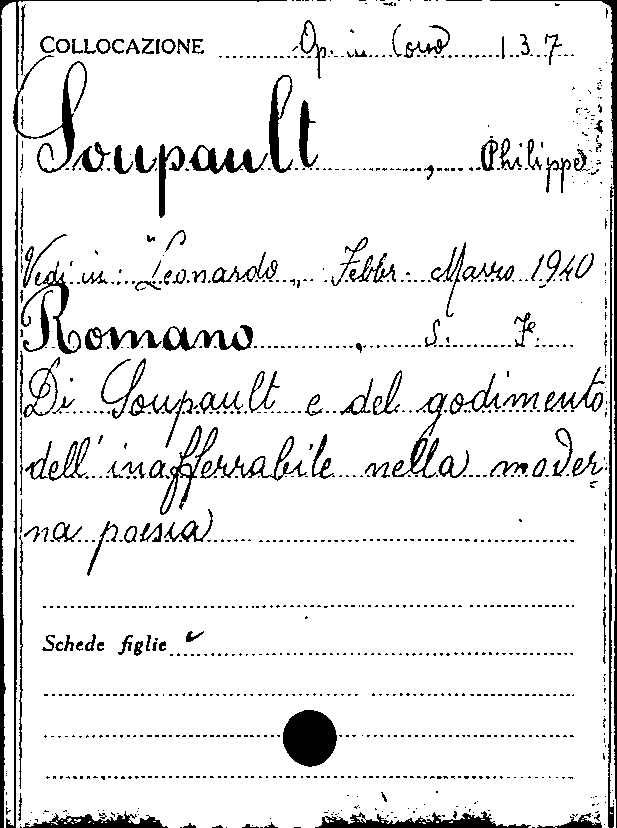 COLLOCAZIONE Op. in Corso 137
Soupault, Philippe
Vedi in: "Leonardo„ Febbr. Marzo 1940
Romano, S. F.
Di Soupault e del godimento
dell'inafferrabile nella moder=
na poesia
Schede figlie